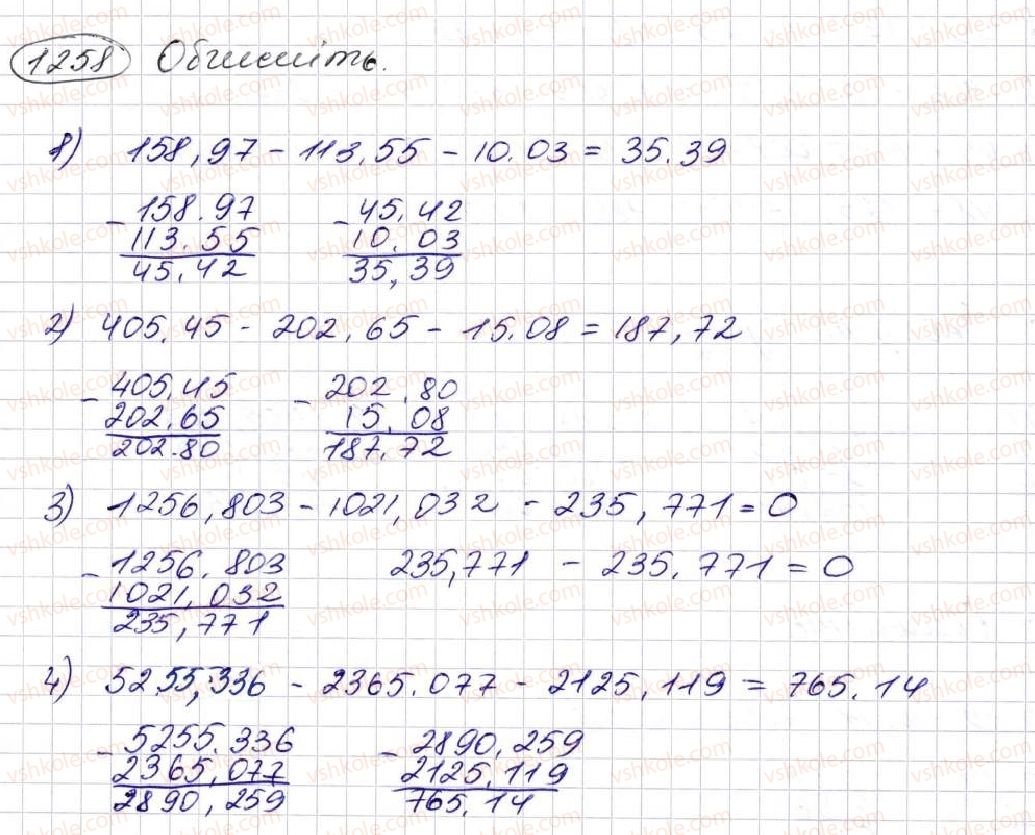 1258 Обчисліть.
1) 158,97 - 113,55 - 10.03 = 35.39
- 158.97 - 45,42
113.55 10.03
45,42 35,39
2) 405,45 - 202,65 - 15.08 = 187,72
- 405,45 - 202,80
202,65 15,08
202.80 187,72
3) 1256,803 - 1021,032 - 235,771 = 0
- 1256.803 235,771 - 235.771 = 0
1021,032
235,771
4) 5255,336 - 2365.077 - 2125,119 = 765.14
- 5255.336 - 2890,259
2365,077 2125,119
2890,259 765.14